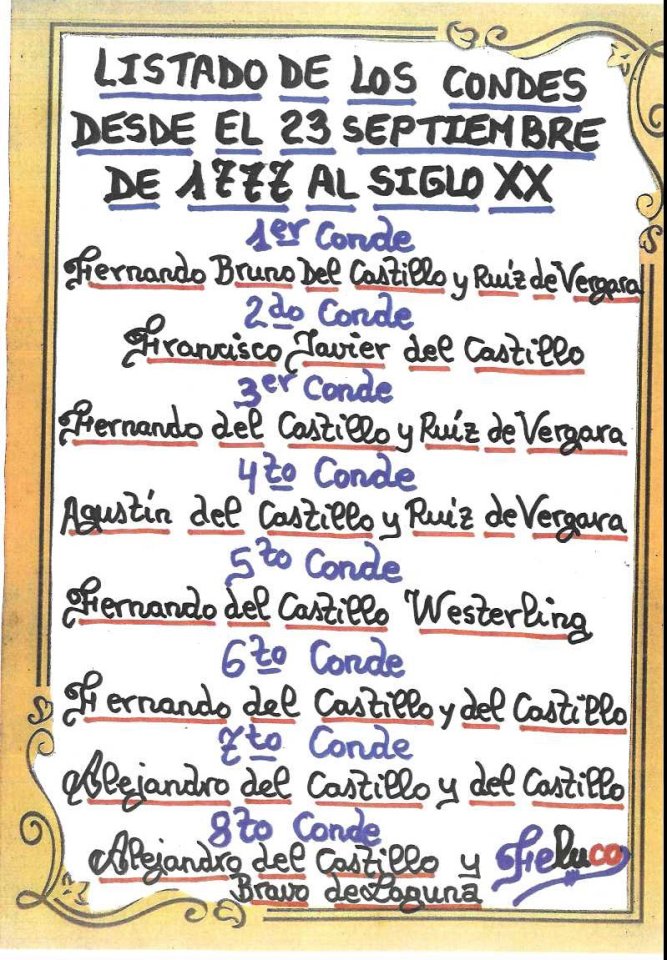 LISTADO DE LOS CONDES
DESDE EL 23 SEPTIEMBRE
DE 1777 AL SIGLO XX
1er Conde
Fernando Bruno Del Castillo y Ruíz de Vergara
2do Conde
Francisco Javier del Castillo
3er Conde
Fernando del Castillo y Ruíz de Vergara
4to Conde
Agustín del Castillo y Ruiz de Vergara
5to Conde
Fernando del Castillo Westerling
6to Conde
Fernando del Castillo y del Castillo
7to Conde
Alejandro del Castillo y del Castillo
8to Conde
Alejandro del Castillo y
Bravo de Laguna
Fieluco